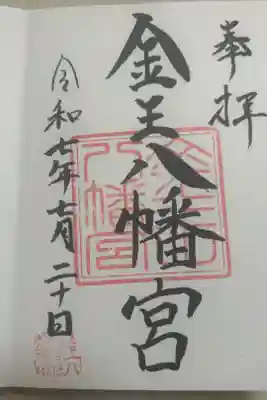 奉拝
金王八幡宮
令和七年七月二十日